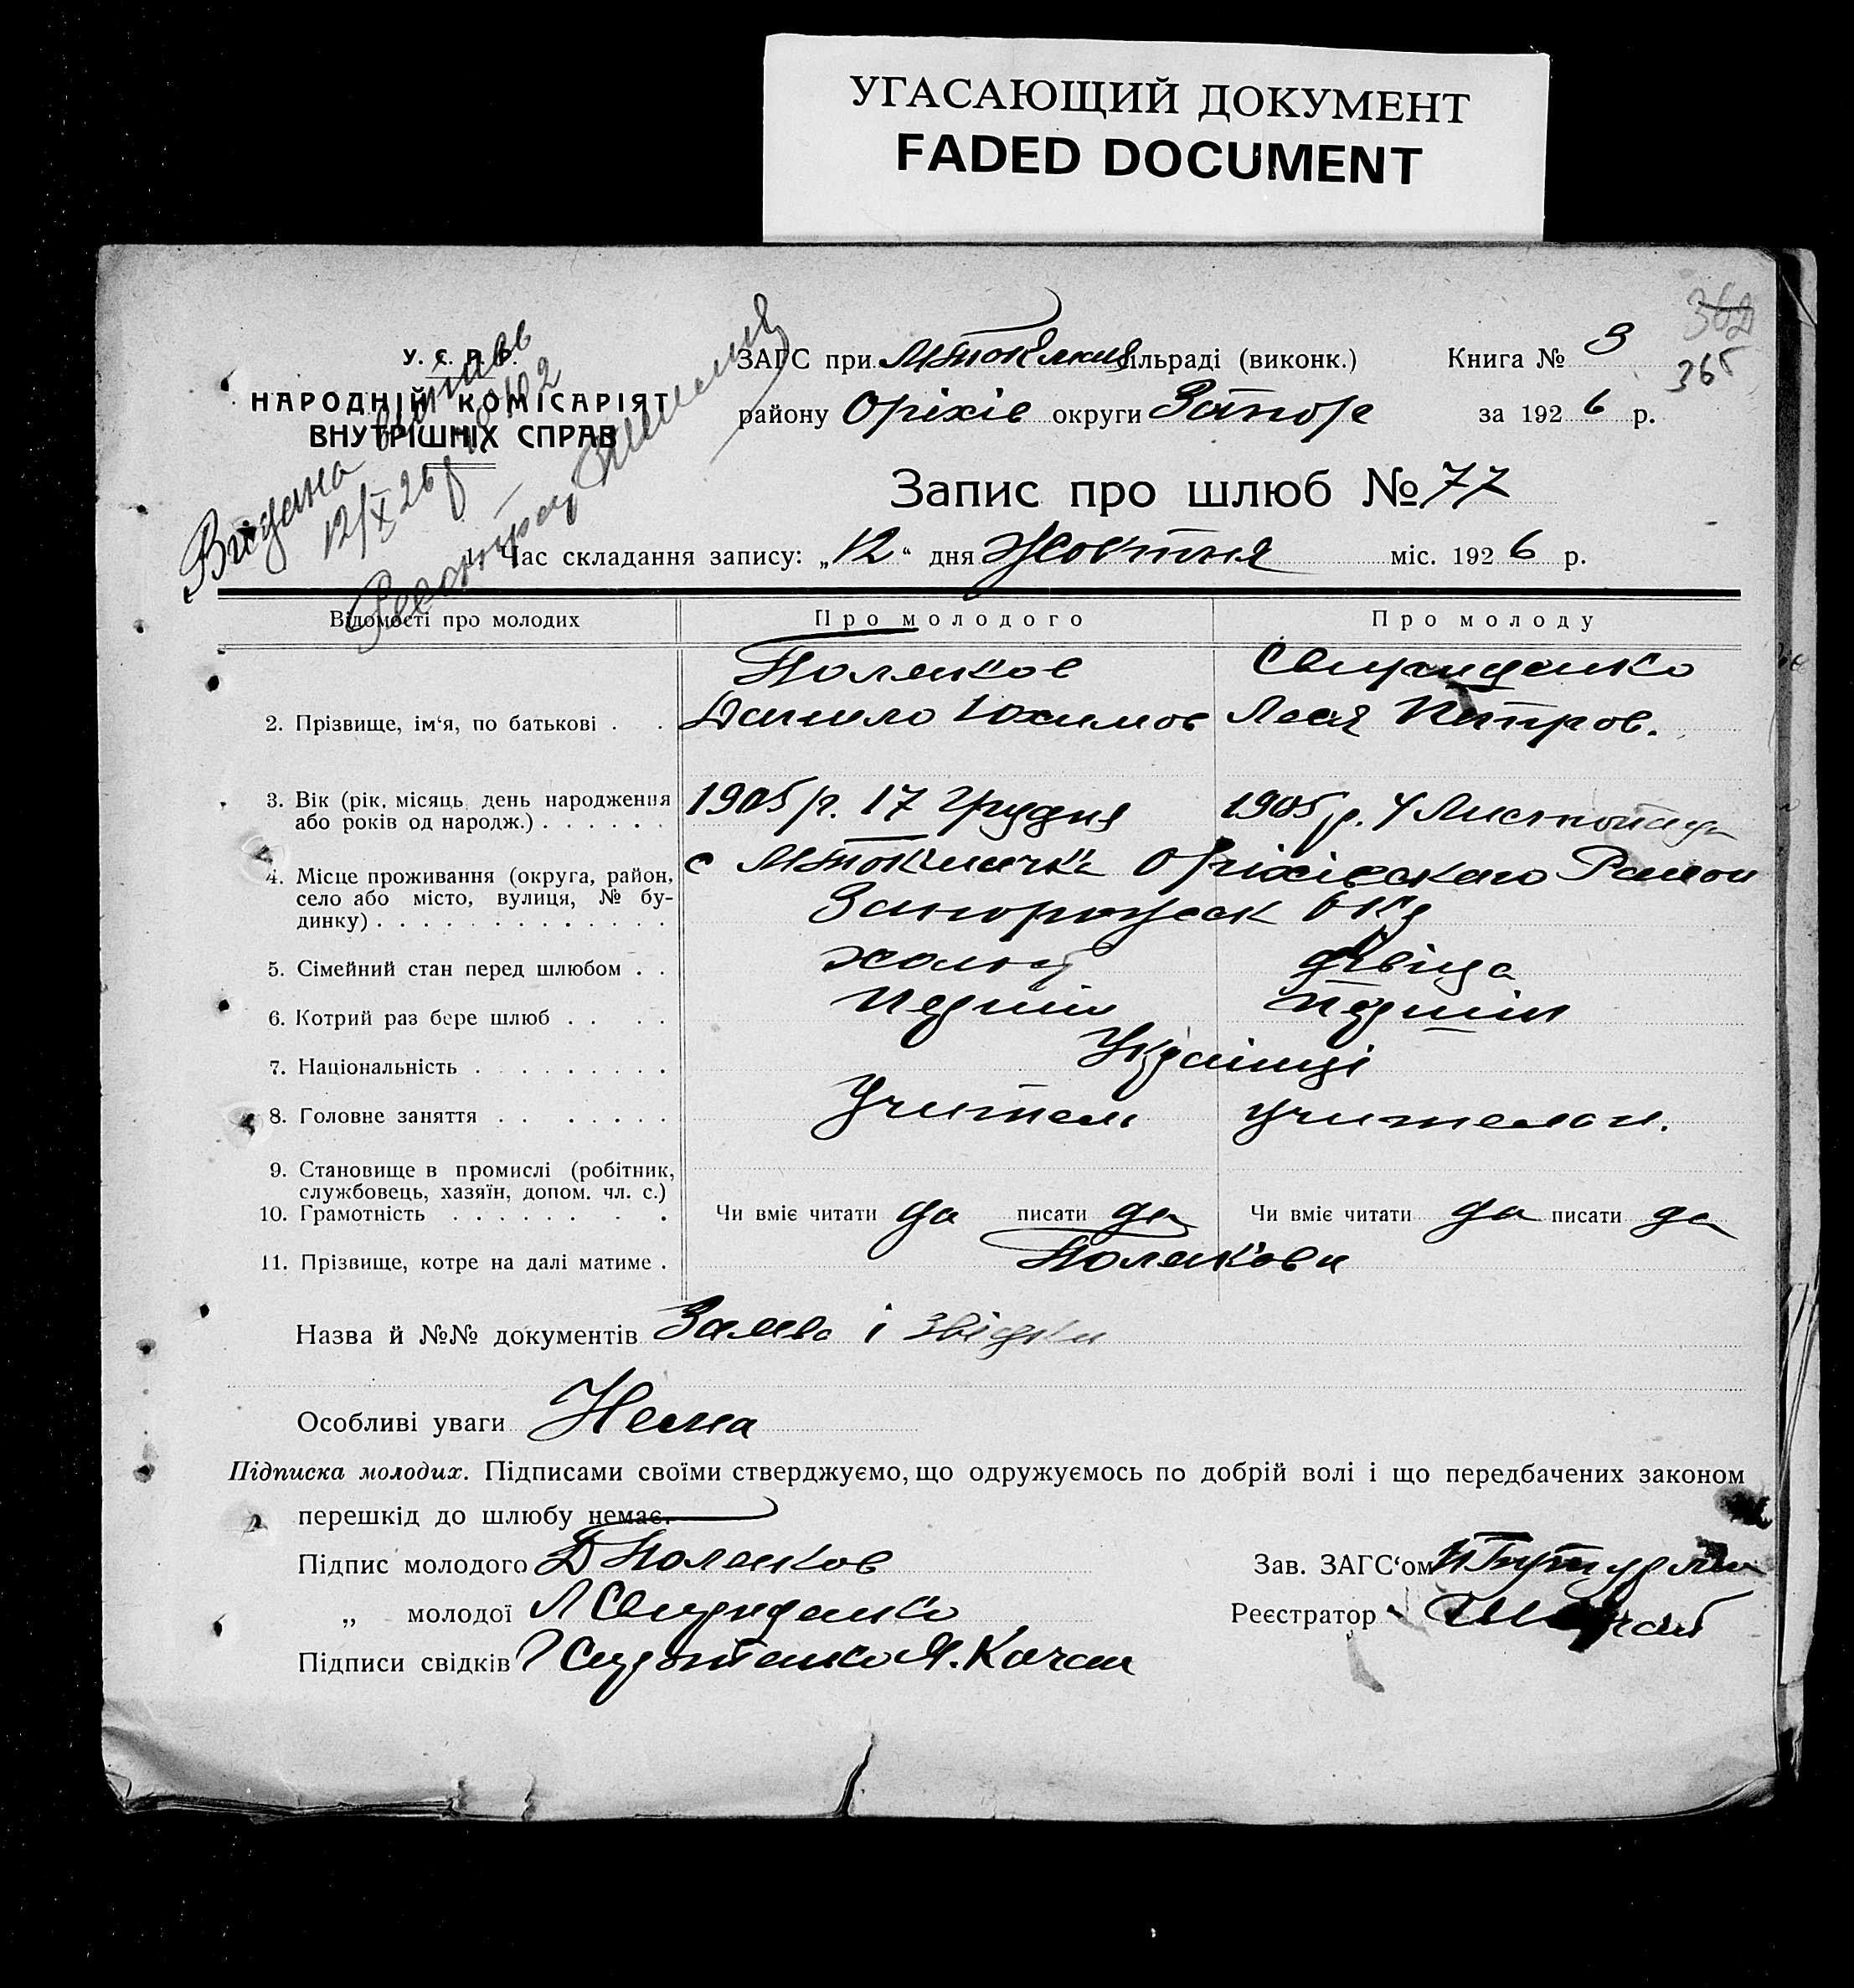 УГАСАЮЩИЙ ДОКУМЕНТ
FADED DOCUMENT
362
365
У. С. Р. Р.
НАРОДНІЙ КОМІСАРІЯТ
ВНУТРІШНІХ СПРАВ
Видана
12/X 26 р
ЗАГС при М Токмацкій сільраді (виконк.) Книга № 3
району Оріхів округи Запор за 1926 р.
Запис про шлюб № 77
Час складання запису: „12“ дня Жовтня міс. 1926 р.
Відомості про молодих Про молодого Про молоду
Поляков Свириденко
2. Прізвище, ім‘я, по батькові . . Данило Юхимов Леся Петров.
3. Вік (рік, місяць, день народження 1905 р. 17 Грудня 1905 р. 4 Листопада
або років од народж.) . . . . . .
4. Місце проживання (округа, район, с МТокмачка Оріхівського Район
село або місто, вулиця, № бу- Запорожск Окр
динку) . . . . . . . . . . . . .
5. Сімейний стан перед шлюбом . . холост дівіца
6. Котрий раз бере шлюб . . . . Перший Перший
7. Національність . . . . . . . . . Українці
8. Головне заняття . . . . . . . Учитель учителька.
9. Становище в промислі (робітник,
службовець, хазяїн, допом. чл. с.)
10. Грамотність . . . . . . . . Чи вміє читати да писати да Чи вміє читати да писати да
11. Прізвище, котре на далі матиме . Полякови
Назва й №№ документів Заява і звідки
Особливі уваги Нема
Підписка молодих. Підписами своїми стверджуємо, що одружуємось по добрій волі і що передбачених законом
перешкід до шлюбу немає.
Підпис молодого Д Поляков Зав. ЗАГС‘ом
„ молодої Л Свириденко Реєстратор
Підписи свідків Я. Качан